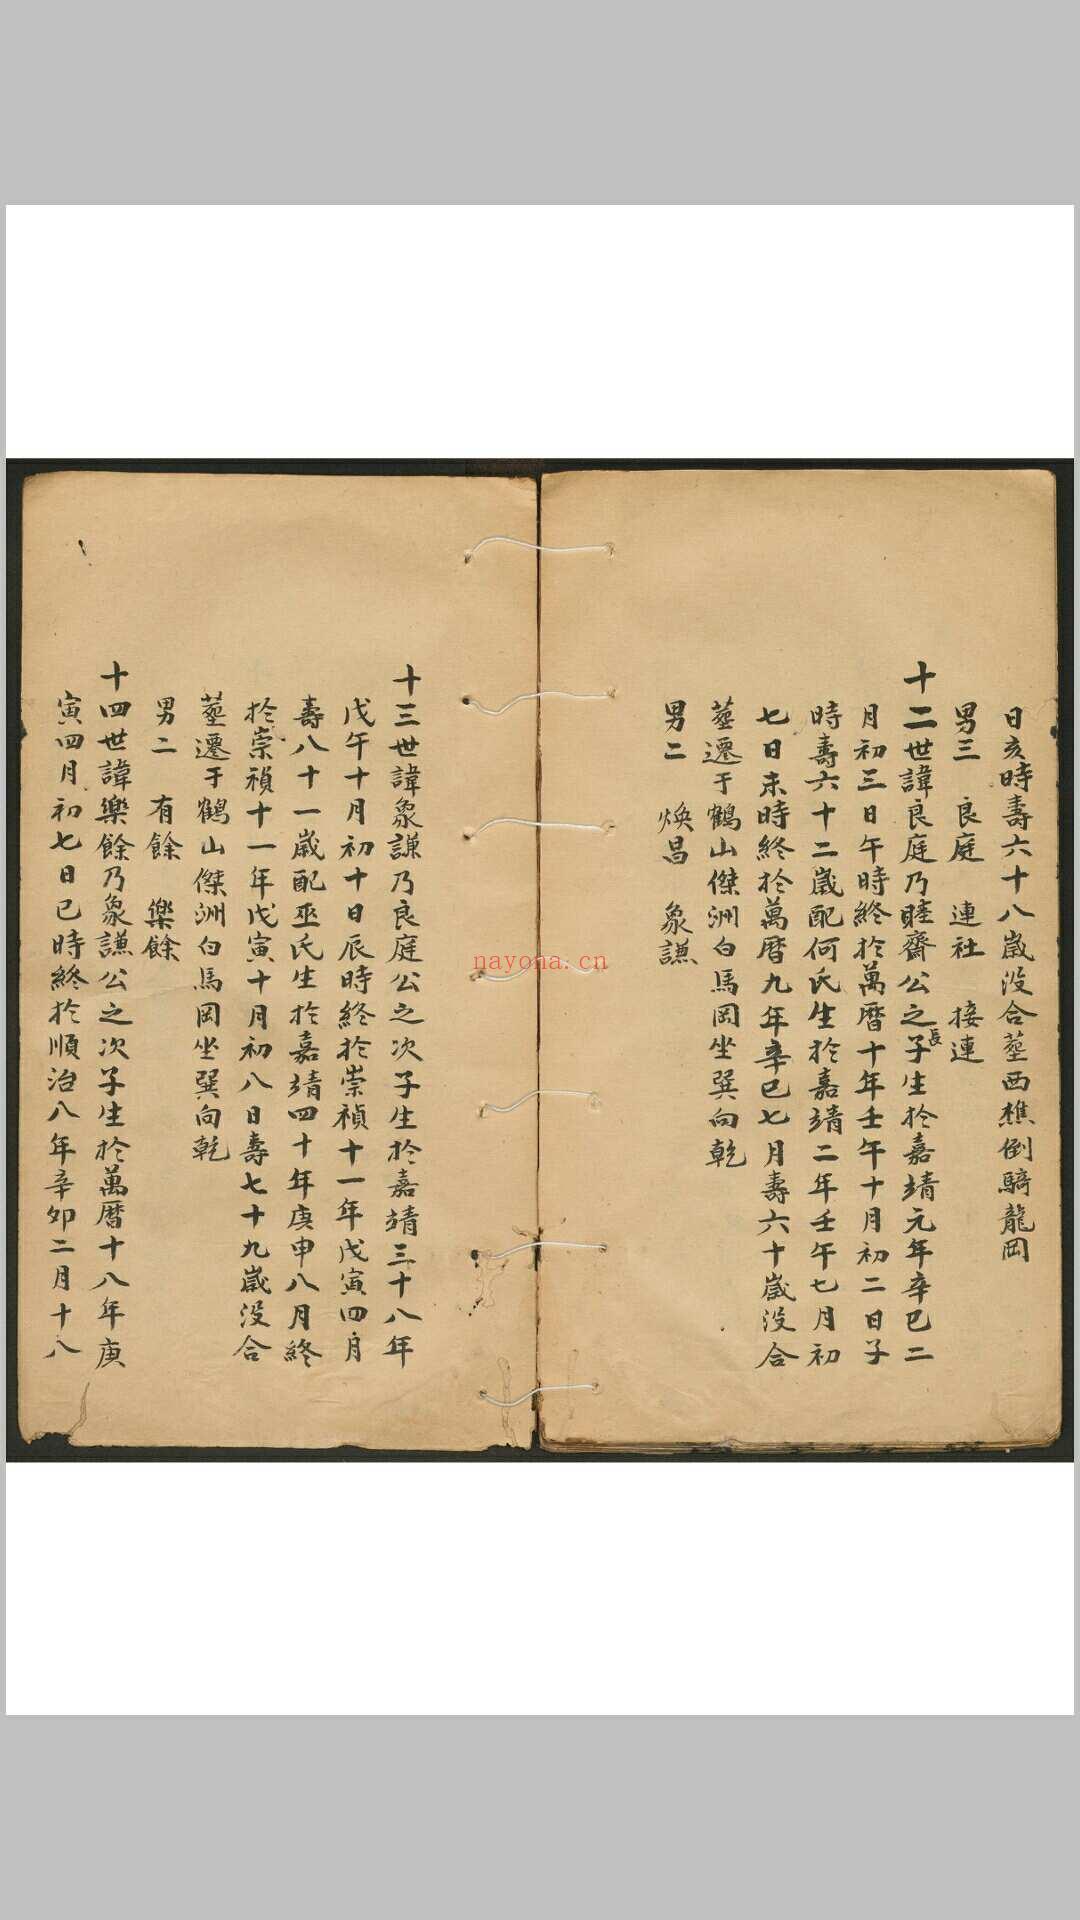 日亥時壽六十八歲没合塟西樵倒騎龍岡
男三 良庭 連社 接連
十二世諱良庭乃睦齋公之長子生於嘉靖元年辛巳二
月初三日午時終於萬曆十年壬午十月初二日子
時壽六十二歲配何氏生於嘉靖二年壬午七月初
七日未時終於萬曆九年辛巳七月壽六十歲没合
塟遷于鶴山傑洲白馬岡坐巽向乾
男二 煥昌 象謙
十三世諱象謙乃良庭公之次子生於嘉靖三十八年
戊午十月初十日辰時終於崇禎十一年戊寅四月
壽八十一歲配巫氏生於嘉靖四十年庚申八月終
於崇禎十一年戊寅十月初八日壽七十九歲没合
塟遷于鶴山傑洲白馬岡坐巽向乾
男二 有餘 樂餘
十四世諱樂餘乃象謙公之次子生於萬曆十八年庚
寅四月初七日巳時終於順治八年辛卯二月十八
nayona.cn